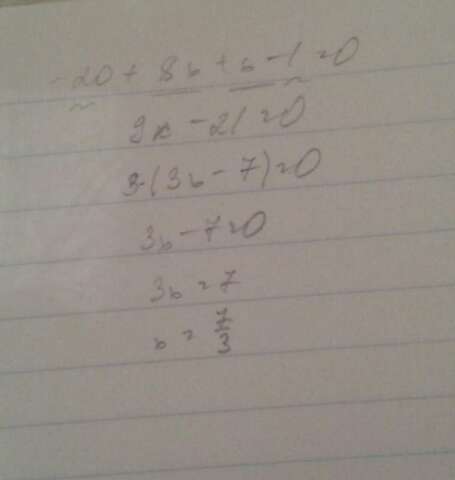 -20 + 8b + b - 1 = 0
9b - 21 = 0
3·(3b - 7) = 0
3b - 7 = 0
3b = 7
b = 7/3